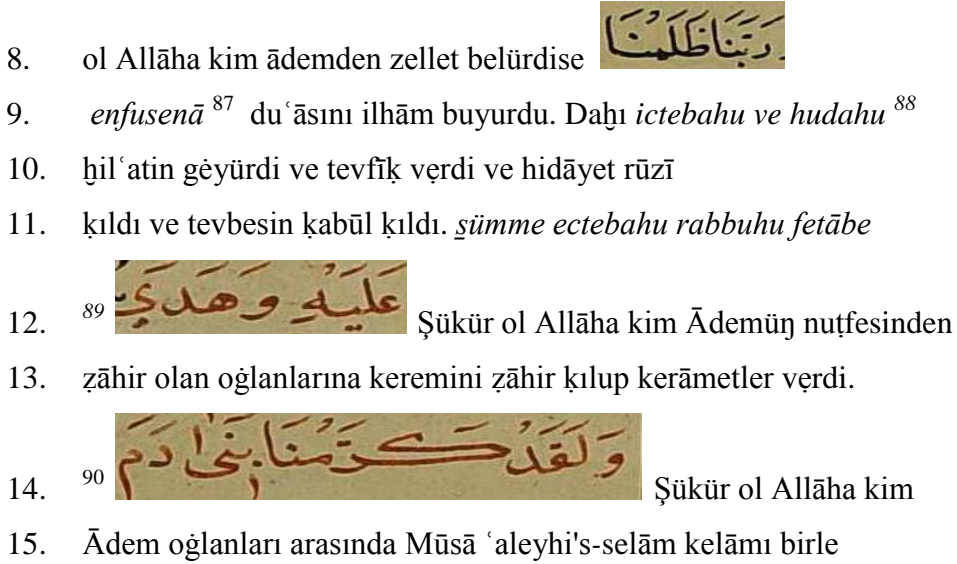 8. ol Allāha kim ādemden zellet belürdise رَبَّنَا ظَلَمْنَا
9. enfusenā 87 duʿāsını ilhām buyurdu. Daḫı ictebahu ve hudahu 88
10. ḫilʿatin gėyürdi ve tevfīḳ vẹrdi ve hidāyet rūzī
11. ḳıldı ve tevbesin ḳabūl ḳıldı. s̱ümme ectebahu rabbuhu fetābe
12. 89 عَلَيْهِ وَهَدَي Şükür ol Allāha kim Ādemüŋ nuṭfesinden
13. ẓāhir olan oġlanlarına keremini ẓāhir ḳılup kerāmetler vẹrdi.
14. 90 وَلَقَدْ كَرَّمْنَا بَنٖى اٰدَمَ Şükür ol Allāha kim
15. Ādem oġlanları arasında Mūsā ʿaleyhi's-selām kelāmı birle